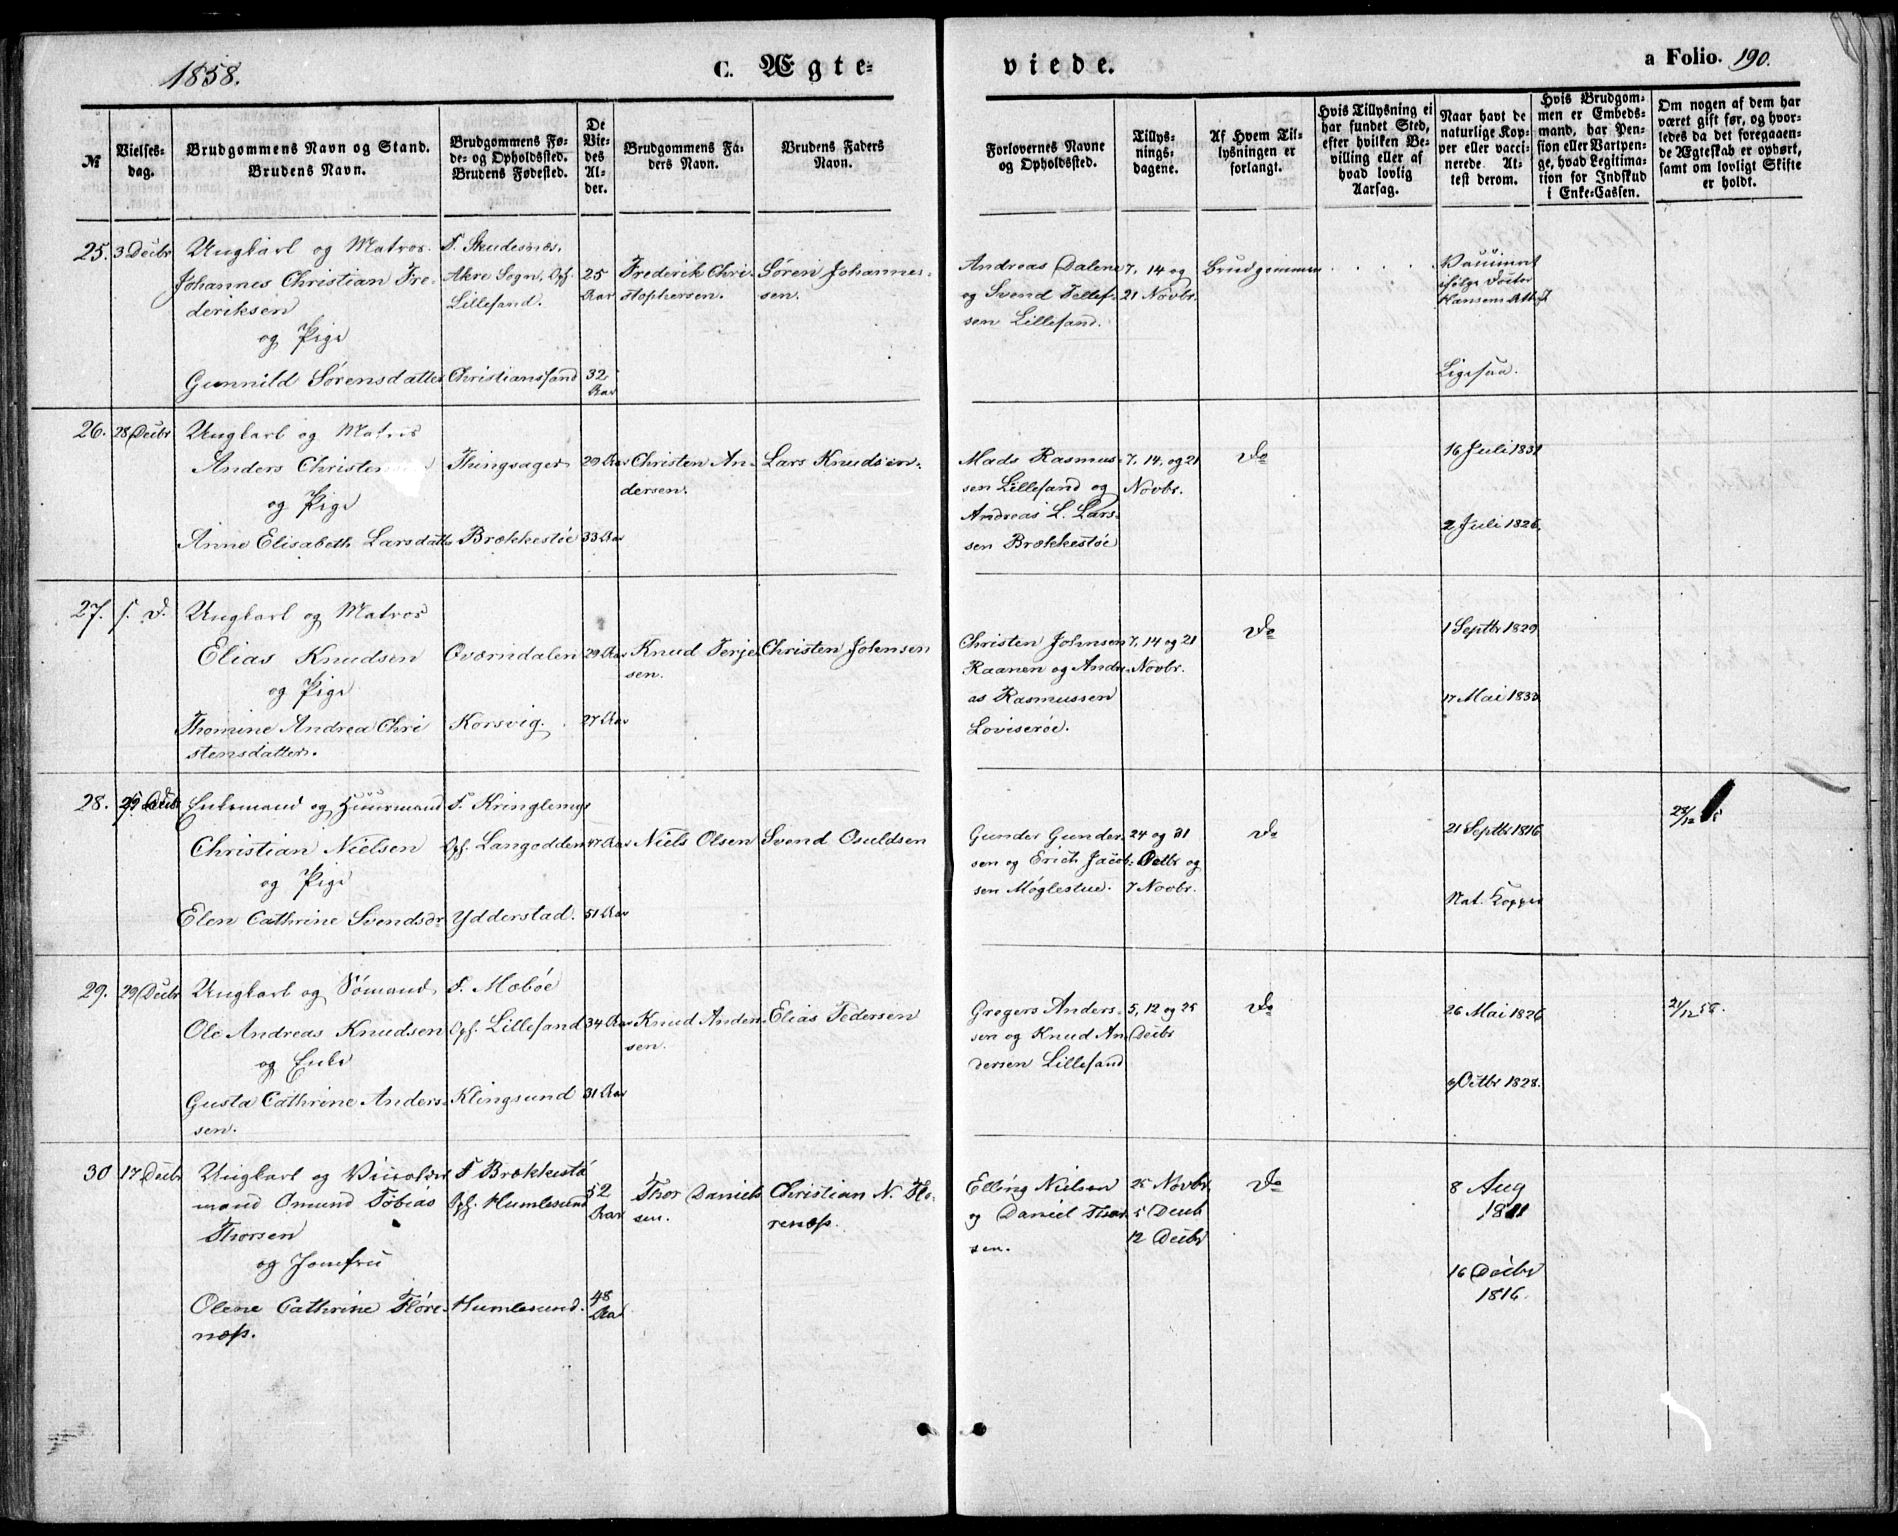 1858.
C. Ægte-
viede.
a Folio. 190.
№
Vielses-
dag.
Brudgommens Navn og Stand.
Brudens Navn.
Brudgommens Fø-
de- og Opholdssted.
Brudens Fødested.
De
Vie-
des
Al-
der.
Brudgommens Fa-
ders Navn.
Brudens Faders
Navn.
Forlovernes Navne
og Opholdssted.
Tillys-
nings-
dagene.
Af Hvem Til-
lysningen er
forlangt.
Hvis Tillysning ei
har fundet Sted,
efter hvilken Be-
villing eller af
hvad lovlig
Aarsag.
Naar havt de
naturlige Kop-
per eller vacci-
nerede. At-
test derom.
Hvis Brudgom-
men er Embeds-
mand, har Pen-
sion eller Vartpen-
ge, hvad Legitima-
tion for Indskud
i Enke-Cassen.
Om nogen af dem har
været gift før, og hvor-
ledes da det foregaaen-
de Ægteskab er ophørt,
samt om lovligt Skifte
er holdt.
25. 3 Decbr
Ungkarl og Matros
Johannes Christian Fre-
deriksen
og Pige
Gunnild Sørensdatter
F. Skudesnæs,
Akre Sogn, Opf.
Lillesand.
Christianssand
25
Aar
32
Aar
Frederik Chri-
stophersen.
Søren Johannes-
sen.
Andreas Dalene
og Svend Tellef-
sen Lillesand.
7, 14 og
21 Novbr.
Brudgommen
ifølge Doctor
Hansens Att
Ligesaa.
26. 28 Decbr
Ungkarl og Matros
Anders Christen
og Pige
Anne Elisabeth Larsdatter
Thingsager
Brækkestøe
29 Aar
33 Aar
Christen An-
dersen.
Lars Knudsen.
Mads Rasmus-
sen Lillesand og
Andreas L. Lars-
sen Brækkestøe
7, 14, og 21
Novbr.
Do
16 Juli 1831
2 Juli 1826
27. s. D.
Ungkarl og Matros
Elias Knudsen
og Pige
Thomine Andrea Chri
stensdatter.
Oværndalen
Korsvig
29 Aar
27 Aar
Knud Terje-
sen.
Christen Johnsen
Christen Johnsen
Raanen og Andre-
as Rasmussen
Loviserøe.
7, 14 og 21
Novbr.
Do
1 Septbr 1829
17 Mai 1832
28. Decbr
Enkemand og Huusmand
Christian Nielsen
og Pige
Elen Cathrine Svendsdr
F. Kringlemyr
Opf. Langodden
Ydderstad.
47 Aar
51 Aar
Niels Olsen
Svend Osuldsen
Gunder Gunder-
sen og Erich Jacob-
sen Møglestue.
24 og 31
Octbr og
7 Novbr.
Do
21 Septbr 1816
Nat. Kopper
28/12
29. 29 Decbr
Ungkarl og Sømand
Ole Andreas Knudsen
og Enke
Gusta Cathrine Anders-
sen.
F. Mæbøe
Opf. Lillesand
Klingsund
34 Aar
31 Aar
Knud Anders-
sen.
Elias Pedersen
Gregers Anders-
sen og Knud An-
dersen Lillesand
5, 12 og 25
Decbr
Do
26 Mai 1826
6 Octbr 1828.
21/12 56.
30 17 Decbr
Ungkarl og
mand Omund Tobias
Thorsen
og Jomfru
Olene Cathrine Flöre-
næss.
F. Brækkestø
Opf. Humlesund
Humlesund.
52
Aar
48
Aar
Thor Daniels-
sen.
Christian N. Flo-
renæss.
Elling Nielsen
og Daniel Thor
sen.
25 Novbr
5 Decbr
12 Decbr
Do
8 Aug
1811
16 Decbr
1816.